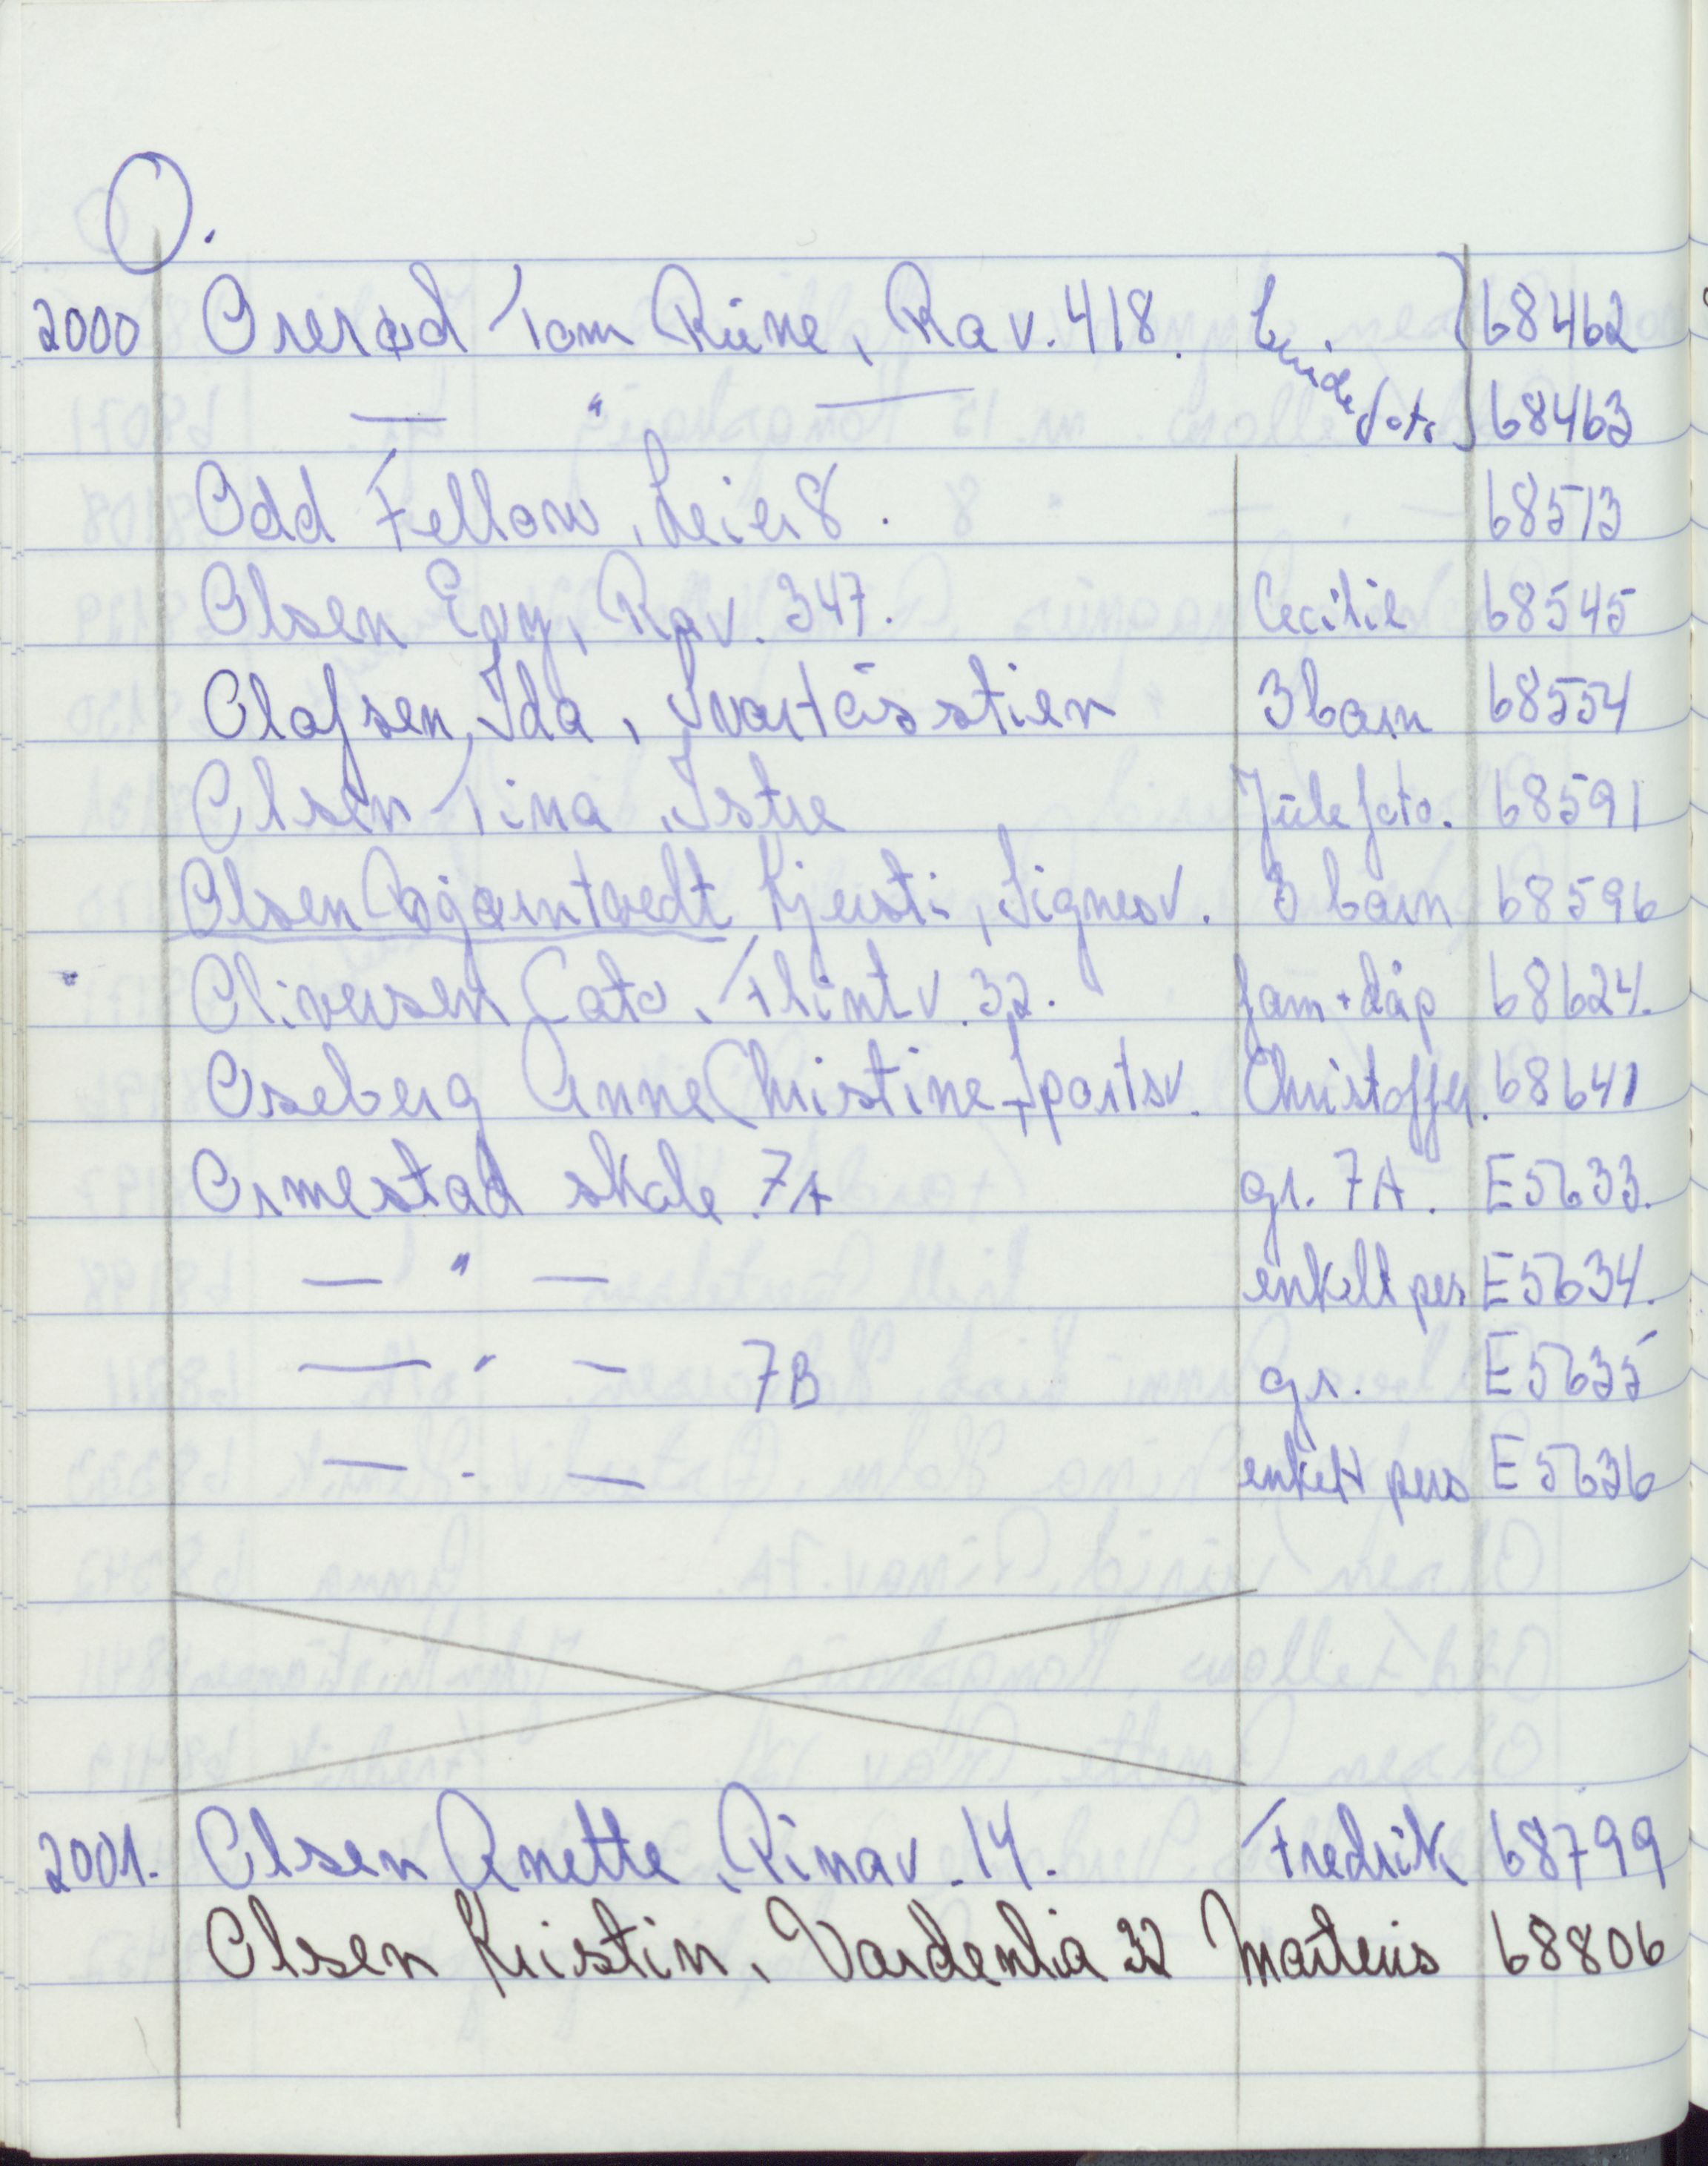 O.
2000 Orerød Tom Rune, Rav. 418. 68462
— " — foto 68463
Odd Fellow, Leier 8. 68513
Olsen Evy, Rav. 347. Cecilie 68545
Olafsen, Ida, Svartåsstien 3 barn 68554
Olsen Tina, Istre Julefoto. 68591
Olsen Bjørntvedt Kjersti, Signesv. 3 barn 68596
Oliversen Cato, Flintv. 32. fam + dåp 68624.
Oseberg Anne Christine, Sportsv. Christoffer. 68641
Ormestad skole 7A gr. 7A. E5633.
— " — enkelt pers E5634.
— " — 7B gr. E5635
— " — enkelt pers E5636
2001. Olsen Anette, Rinav. 14. Fredrik 68799
Olsen Kristin, Vardenlia 32 Marteus 68806